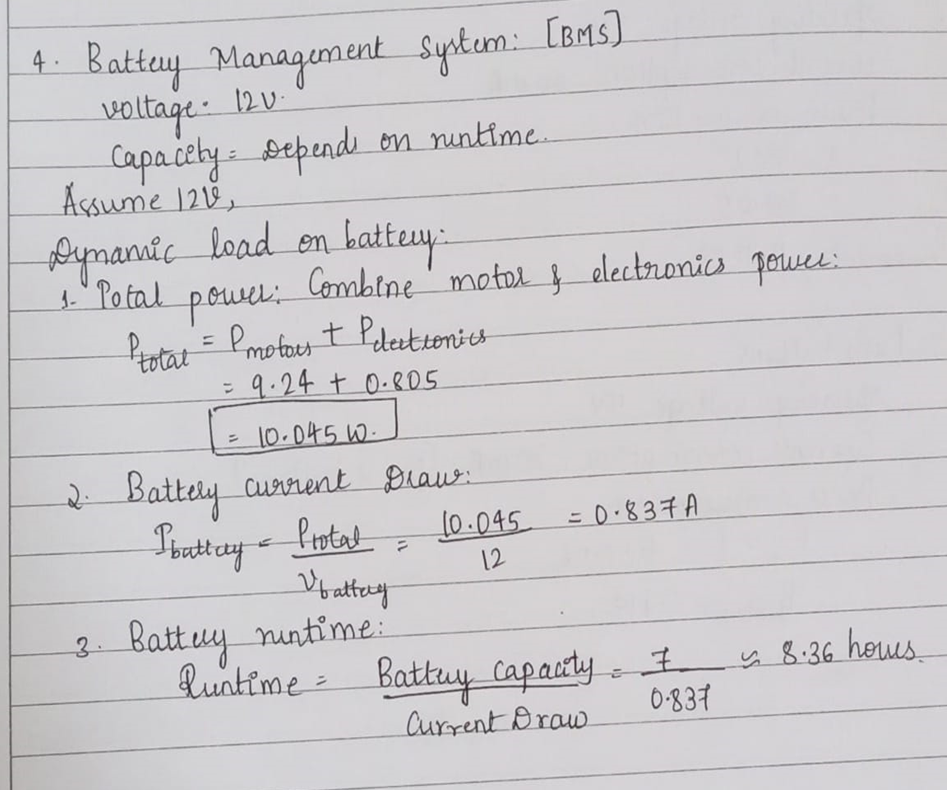 4. Battery Management System: [BMS]
voltage: 12V.
Capacity = Depends on runtime.
Assume 12V,
Dynamic load on battery:
1. Total power: Combine motor & electronics power:
P_total = P_motors + P_electronics
= 9.24 + 0.805
= 10.045 W.
2. Battery current Draw:
I_battery = P_total / V_battery = 10.045 / 12 = 0.837A
3. Battery runtime:
Runtime = Battery Capacity / Current Draw = 7 / 0.837 ≈ 8.36 hours.